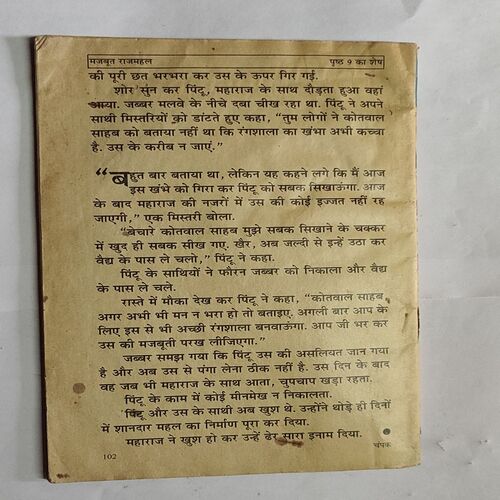 मजबूत राजमहल
पृष्ठ 9 का शेष
की पूरी छत भरभरा कर उस के ऊपर गिर गई.
शोर सुन कर पिंटू, महाराज के साथ दौड़ता हुआ वहां
आया. जब्बर मलवे के नीचे दबा चीख रहा था. पिंटू ने अपने
साथी मिस्तरियों को डांटते हुए कहा, “तुम लोगों ने कोतवाल
साहब को बताया नहीं था कि रंगशाला का खंभा अभी कच्चा
है. उस के करीब न जाएं.”
“बहुत बार बताया था, लेकिन यह कहने लगे कि मैं आज
इस खंभे को गिरा कर पिंटू को सबक सिखाऊंगा. आज
के बाद महाराज की नजरों में उस की कोई इज्जत नहीं रह
जाएगी,” एक मिस्तरी बोला.
“बेचारे कोतवाल साहब मुझे सबक सिखाने के चक्कर
में खुद ही सबक सीख गए. खैर, अब जल्दी से इन्हें उठा कर
वैद्य के पास ले चलो,” पिंटू ने कहा.
पिंटू के साथियों ने फौरन जब्बर को निकाला और वैद्य
के पास ले चले.
रास्ते में मौका देख कर पिंटू ने कहा, “कोतवाल साहब,
अगर अभी भी मन न भरा हो तो बताइए. अगली बार आप के
लिए इस से भी अच्छी रंगशाला बनवाऊंगा. आप जी भर कर
उस की मजबूती परख लीजिएगा.”
जब्बर समझ गया कि पिंटू उस की असलियत जान गया
है और अब उस से पंगा लेना ठीक नहीं है. उस दिन के बाद
वह जब भी महाराज के साथ आता, चुपचाप खड़ा रहता.
पिंटू के काम में कोई मीनमेख न निकालता.
पिंटू और उस के साथी अब खुश थे. उन्होंने थोड़े ही दिनों
में शानदार महल का निर्माण पूरा कर दिया.
महाराज ने खुश हो कर उन्हें ढेर सारा इनाम दिया.
102
चंपक